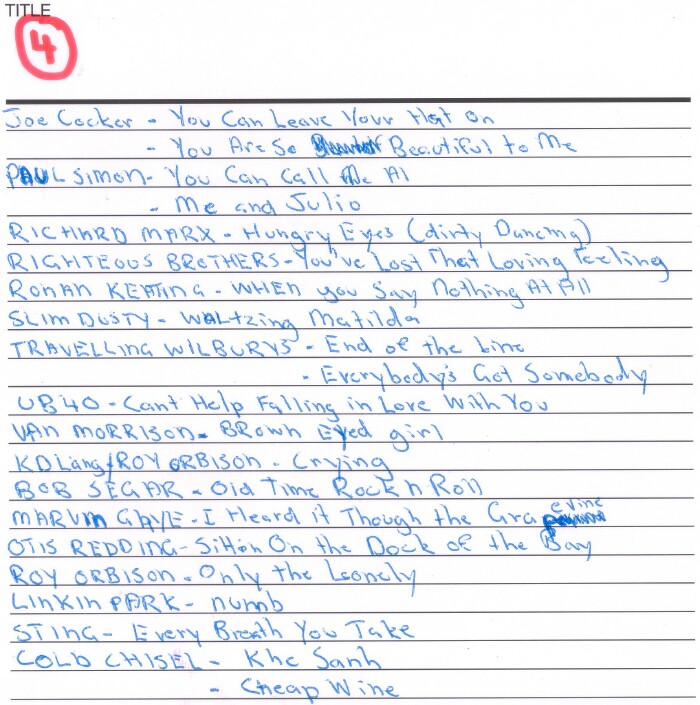 TITLE
4
Joe Cocker - You Can Leave Your Hat On
- You Are So Beautiful to Me
PAUL SIMON - You Can Call Me Al
- Me and Julio
RICHARD MARX - Hungry Eyes (dirty Dancing)
RIGHTEOUS BROTHERS - You've Lost That Loving Feeling
RONAN KEATING - WHEN you Say Nothing At All
SLIM DUSTY - WALTzing Matilda
TRAVELLING WILBURYS - End of the Line
- Everybody's Got Somebody
UB40 - Cant Help Falling in Love With You
VAN MORRISON - BROWN EYed girl
KD Lang/ROY ORBISON - Crying
BOB SEGAR - Old Time Rock n Roll
MARVIN GAYE - I Heard it Though the Grapevine
OTIS REDDING - Sitton On the Dock of the Bay
ROY ORBISON - Only the Lonely
LINKIN PARK - numb
STING - Every Breath You Take
COLD CHISEL - Khe Sanh
- Cheap Wine